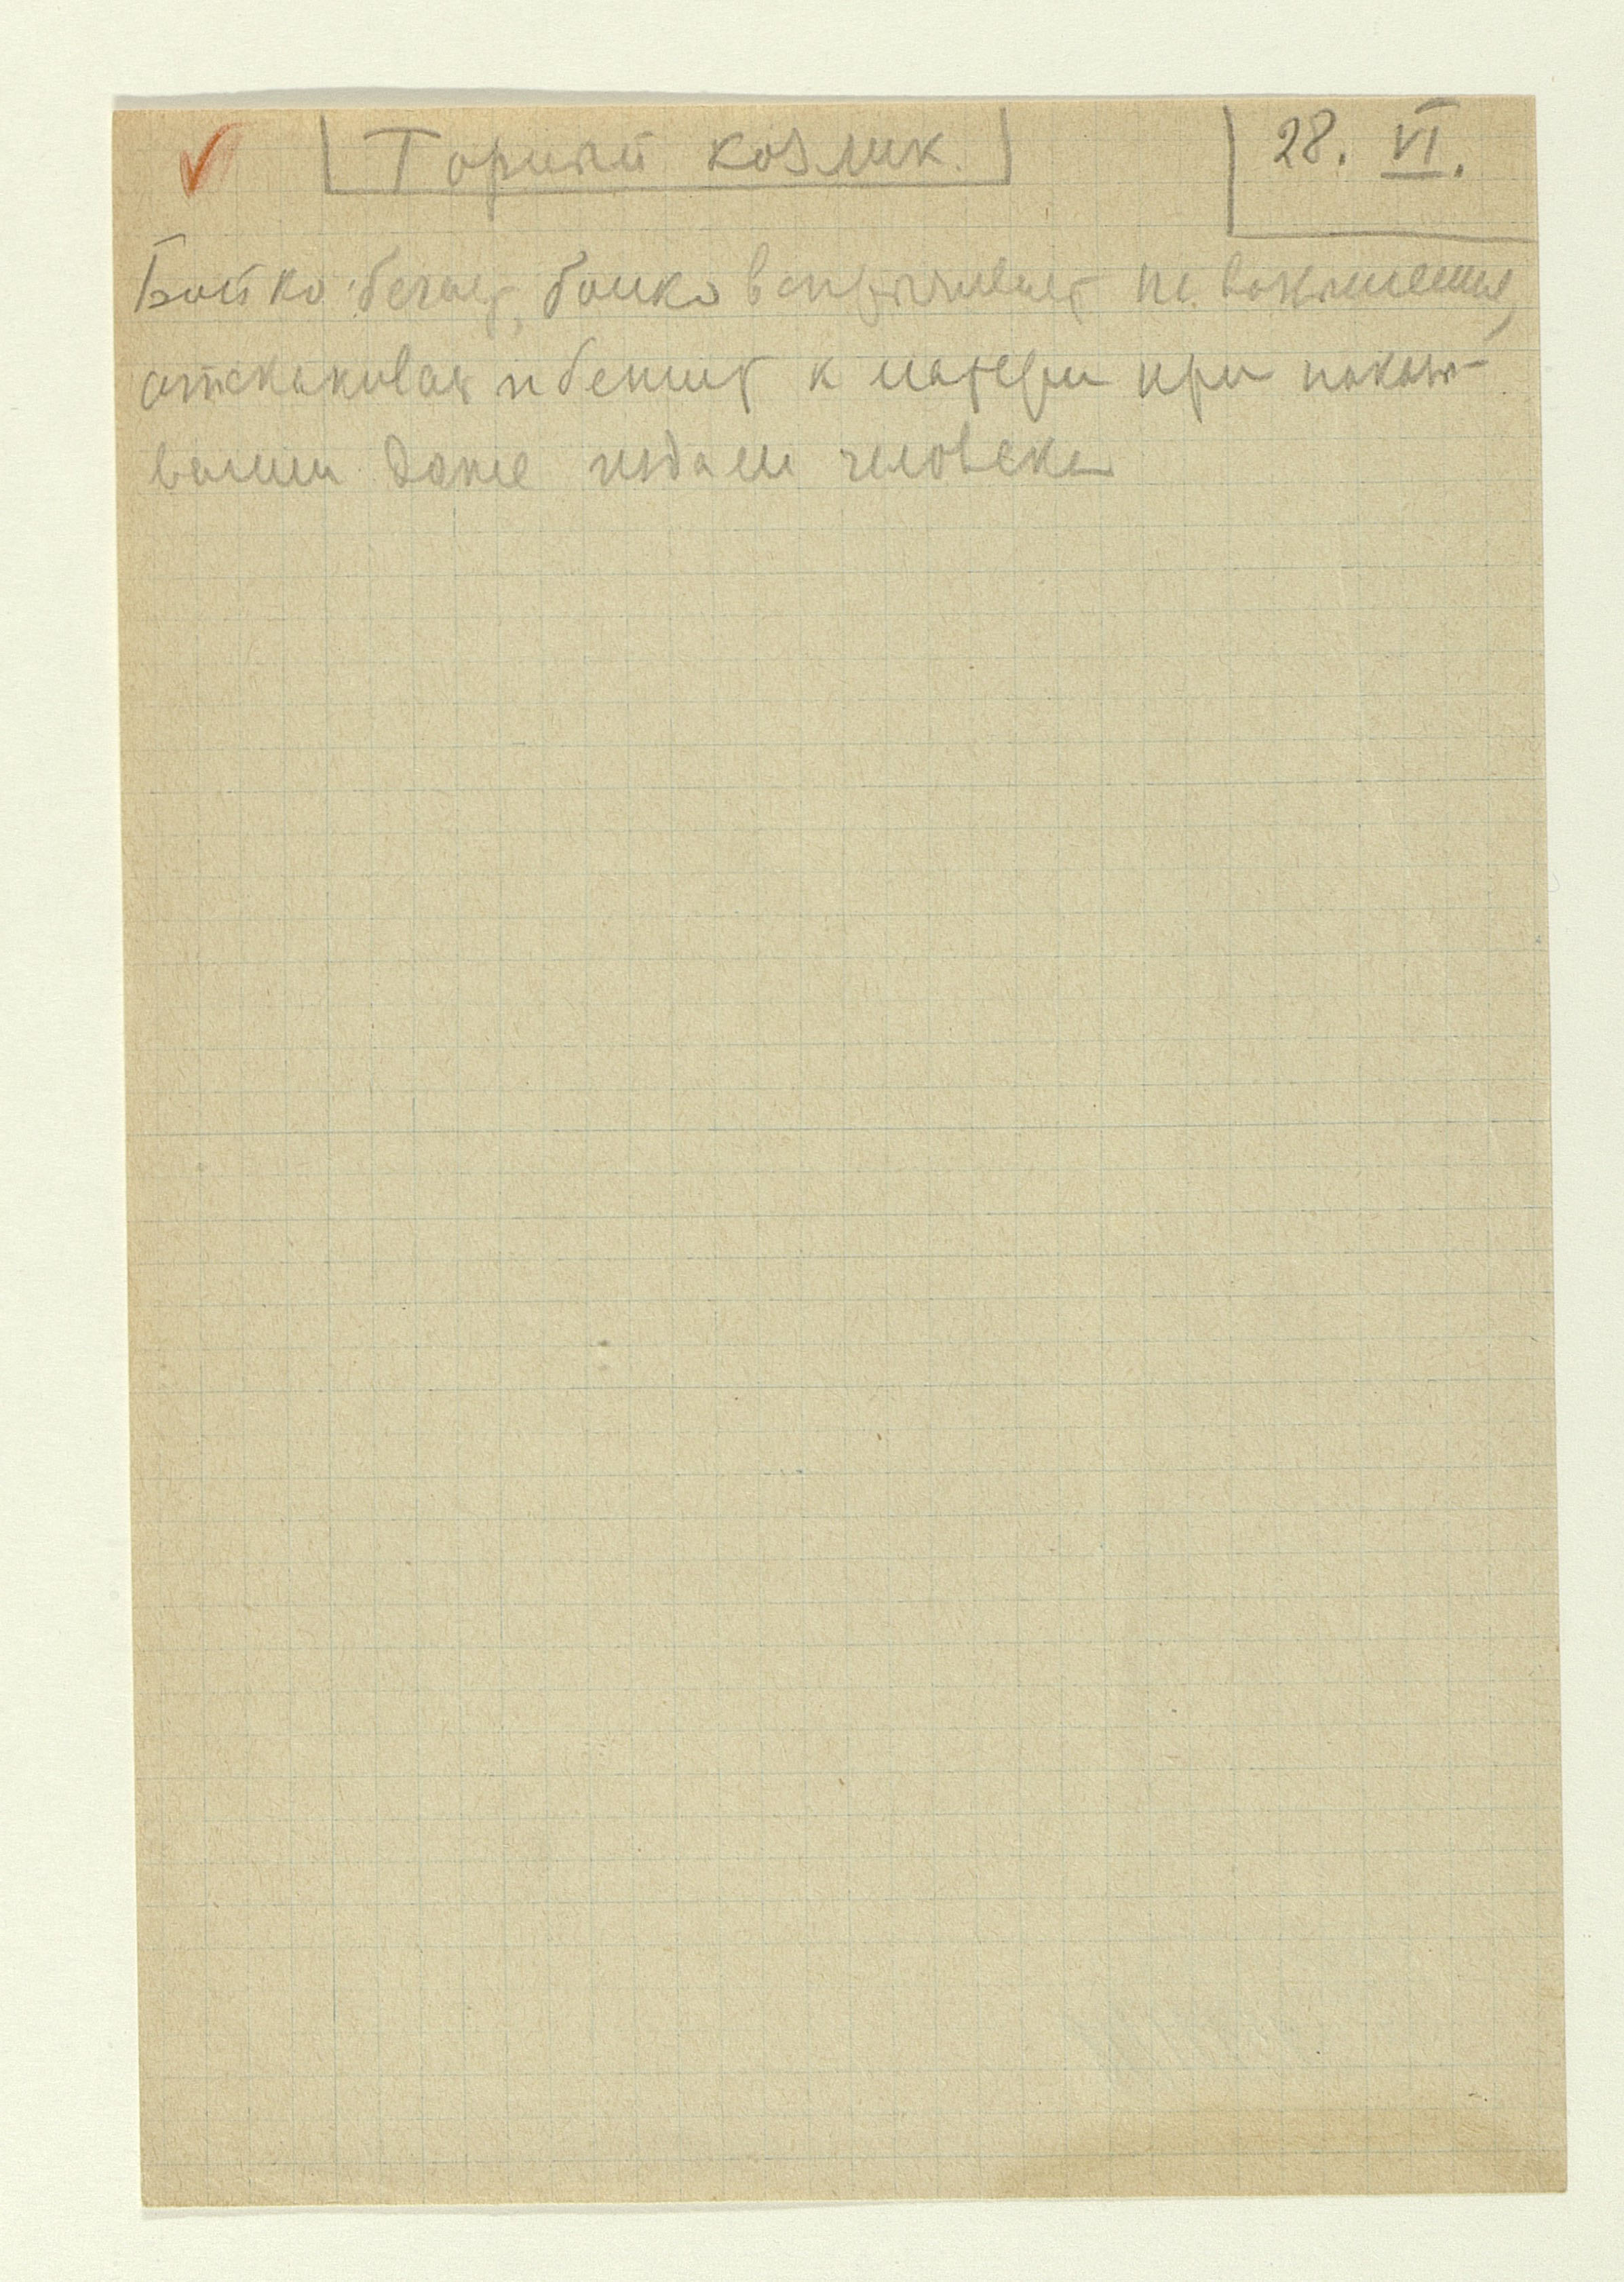 Горный козлик. 28. VI.
Бойко бегает, бойко вспрыгивает на возвышения,
отскакивает и бежит к матери при показы-
вании даже издали человека